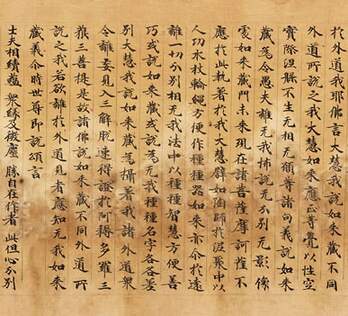 於外道我耶佛言大慧我說如來藏不同
外道所說之我大慧如來應正等覺以性空
實際涅槃不生无相无願等諸句義說如來
藏為令愚夫離无我怖說无分別无影像
處如來藏門未來現在諸菩薩摩訶薩不
應於此執著於我大慧譬如陶師於泥聚中以
人功水杖輪繩方便作種種器如來亦尒於遠
離一切分別相无我法中以種種智慧方便善
巧或說如來藏或說為无我種種名字各各差
別大慧我說如來藏為攝著我諸外道衆
令離妄見入三解脫速得證於阿耨多羅三
藐三菩提是故諸佛說如來藏不同外道所
說之我若欲離於外道見者應知无我如來
藏義尒時世尊即說頌言
士夫相續藴 衆緣及微塵 勝自在作者 此但心分別